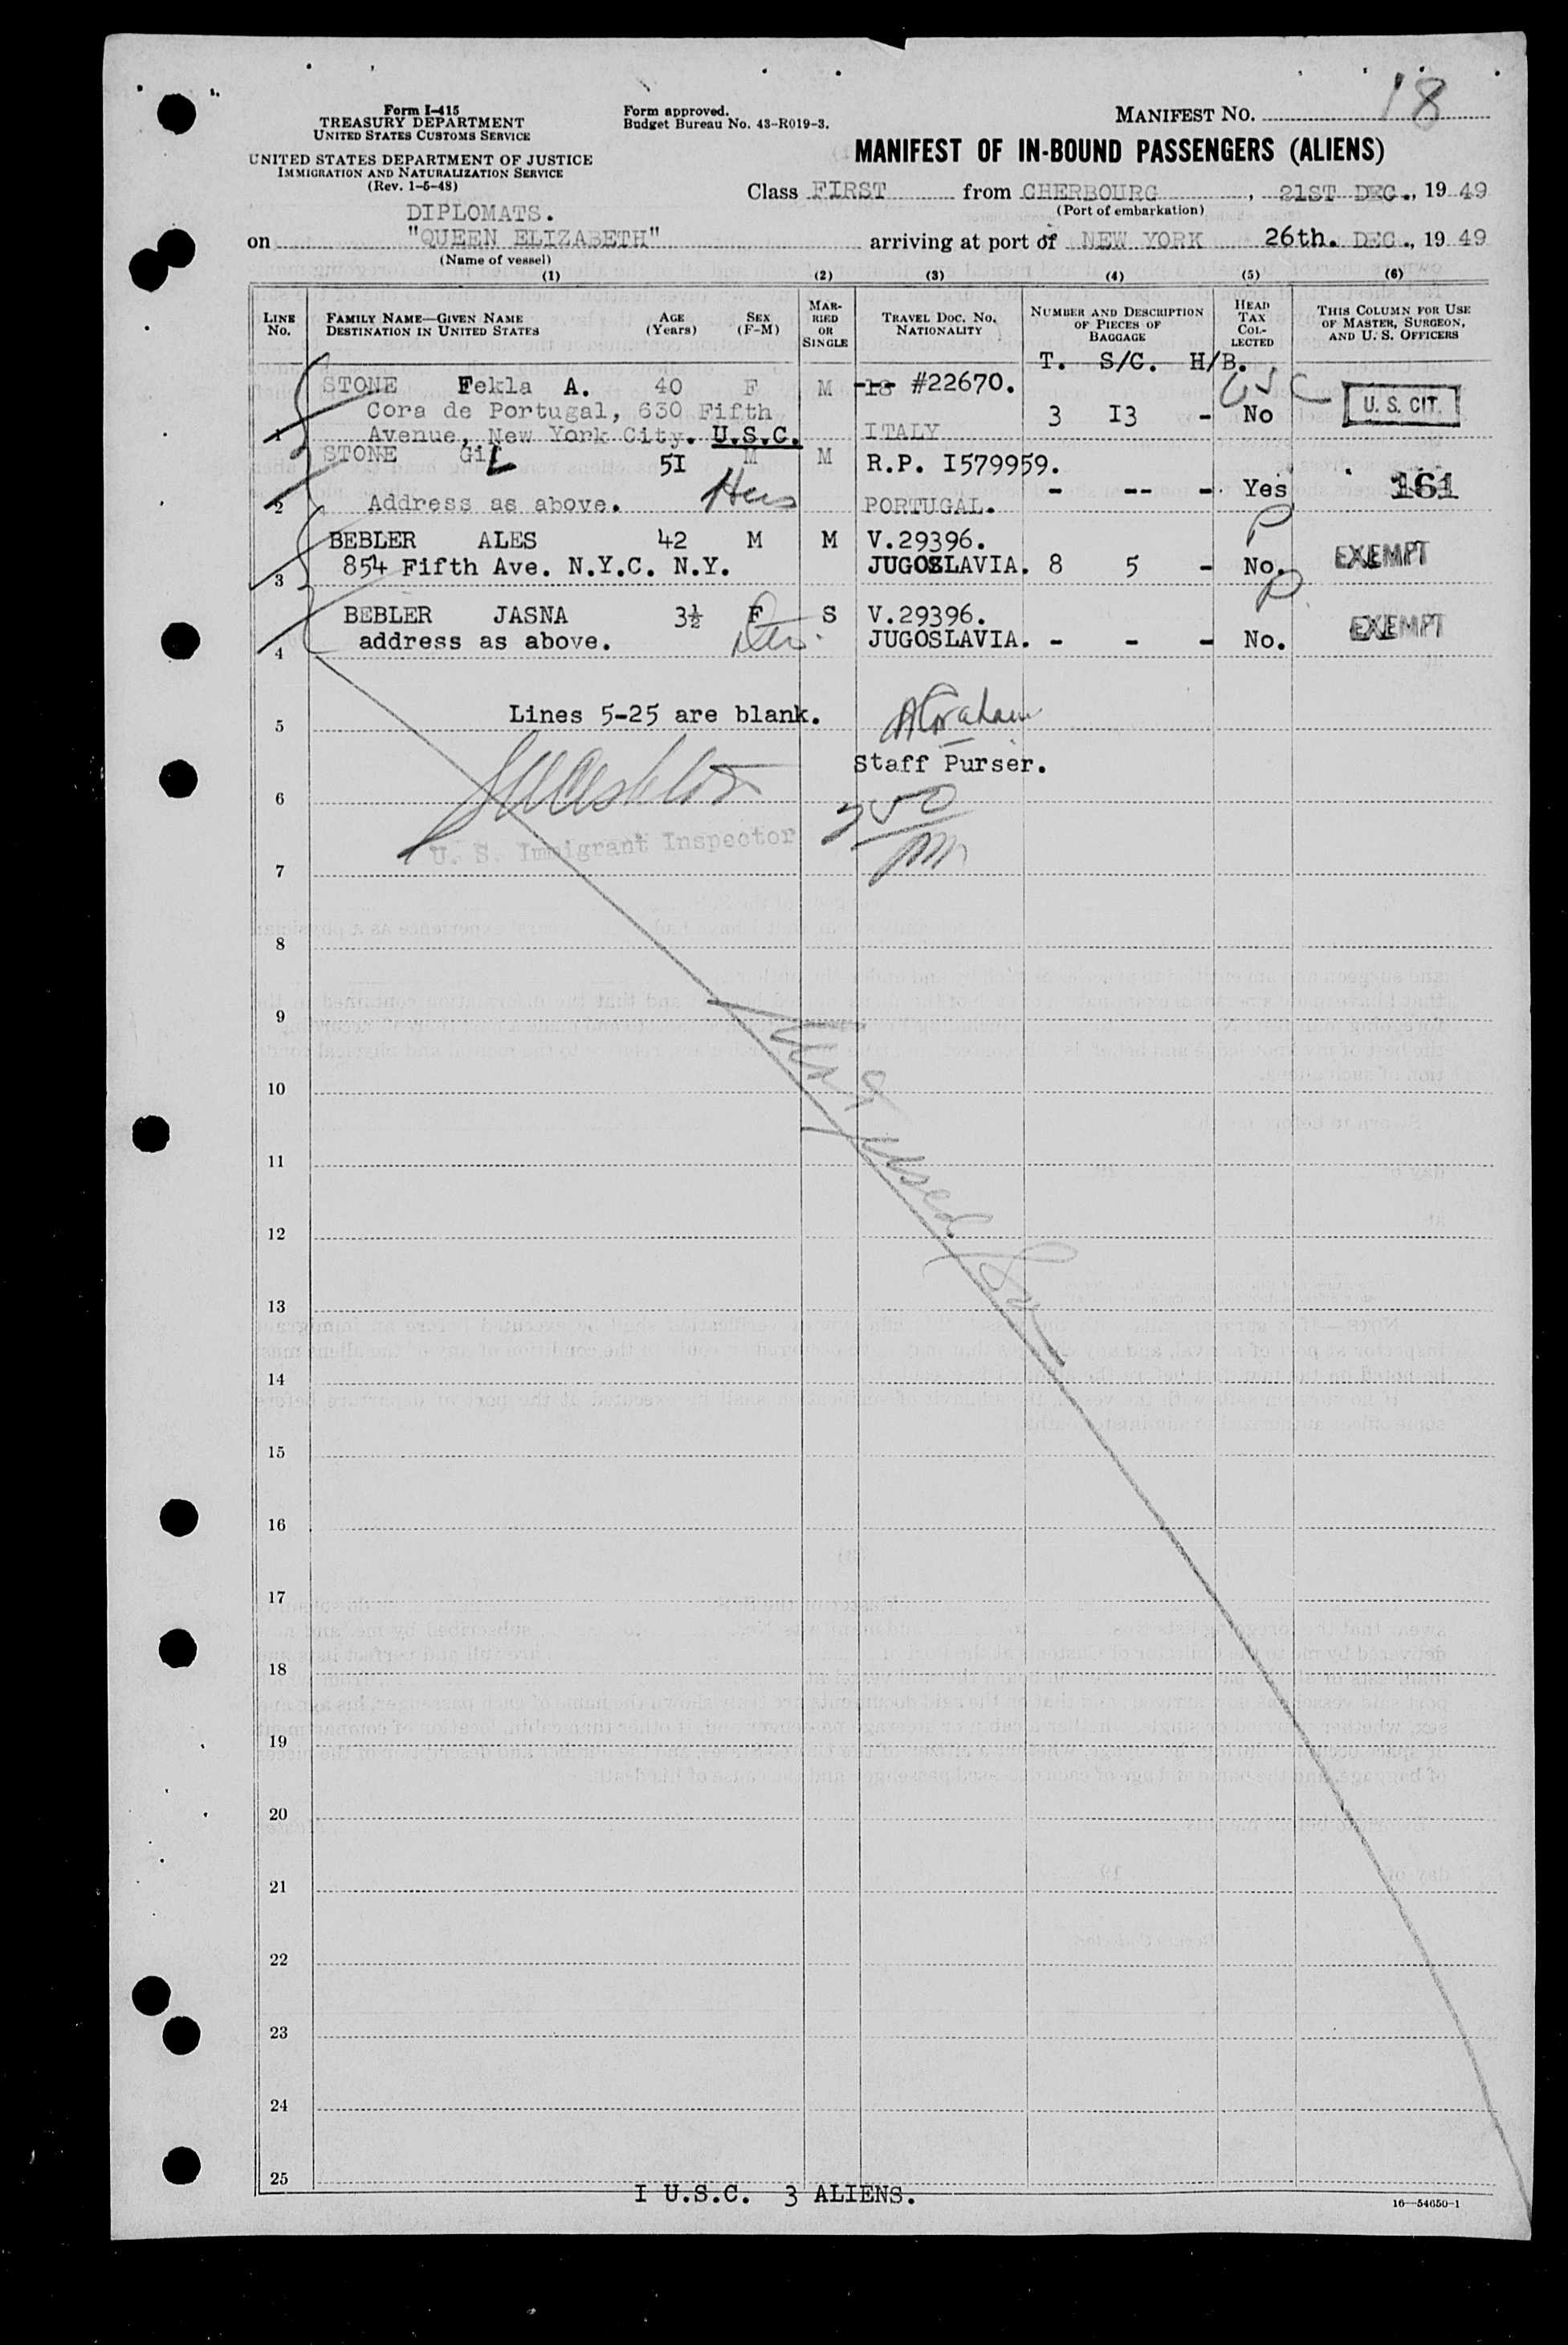 Form I-415
TREASURY DEPARTMENT
UNITED STATES CUSTOMS SERVICE
UNITED STATES DEPARTMENT OF JUSTICE
IMMIGRATION AND NATURALIZATION SERVICE
(Rev. 1-5-48)
Form approved.
Budget Bureau No. 43-R019-3.
MANIFEST NO. 18
MANIFEST OF IN-BOUND PASSENGERS (ALIENS)
Class FIRST from CHERBOURG, 21ST DEC., 1949
(Port of embarkation)
DIPLOMATS.
on "QUEEN ELIZABETH" arriving at port of NEW YORK 26th. DEC., 1949
(Name of vessel)
(1) (2) (3) (4) (5) (6)
LINE No. FAMILY NAME—GIVEN NAME DESTINATION IN UNITED STATES AGE (Years) SEX (F-M) MARRIED OR SINGLE TRAVEL DOC. NO. NATIONALITY NUMBER AND DESCRIPTION OF PIECES OF BAGGAGE HEAD TAX COLLECTED THIS COLUMN FOR USE OF MASTER, SURGEON, AND U. S. OFFICERS
T. S/C. H/B.
STONE Fekla A. 40 F M #22670. USC
Cora de Portugal, 630 Fifth 3 I3 - No U. S. CIT.
1 Avenue, New York City. U.S.C. ITALY
STONE Gil 5I M M R.P. I579959.
2 Address as above. Hus PORTUGAL. - -- - Yes 161
BEBLER ALES 42 M M V.29396. P
3 854 Fifth Ave. N.Y.C. N.Y. JUGOSLAVIA. 8 5 - No. EXEMPT
BEBLER JASNA 3½ F S V.29396. P
4 address as above. JUGOSLAVIA. - - - No. EXEMPT
5 Lines 5-25 are blank.
Staff Purser.
6
U. S. Immigrant Inspector
7
8
9
10
11
12
13
14
15
16
17
18
19
20
21
22
23
24
25
I U.S.C. 3 ALIENS.
16—54650-1